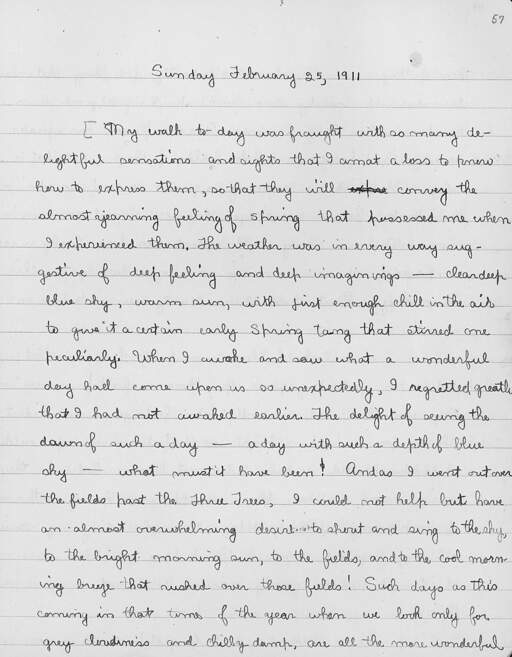 57
Sunday February 25, 1911
[ My walk to day was fraught with so many de-
lightful sensations and sights that I am at a loss to know
how to express them, so that they will convey the
almost yearning feeling of Spring that possessed me when
I experienced them. The weather was in every way sug-
gestive of deep feeling and deep imaginings — clear deep
blue sky, warm sun, with just enough chill in the air
to give it a certain early Spring tang that stirred one
peculiarly. When I awoke and saw what a wonderful
day had come upon us so unexpectedly, I regretted greatly
that I had not awaked earlier. The delight of seeing the
dawn of such a day — a day with such a depth of blue
sky — what must it have been! And as I went out over
the fields past the Three Trees, I could not help but have
an almost overwhelming desire to shout and sing to the sky,
to the bright morning sun, to the fields, and to the cool morn-
ing breeze that rushed over those fields! Such days as this
coming in that time of the year when we look only for
grey cloudiness and chilly damp, are all the more wonderful